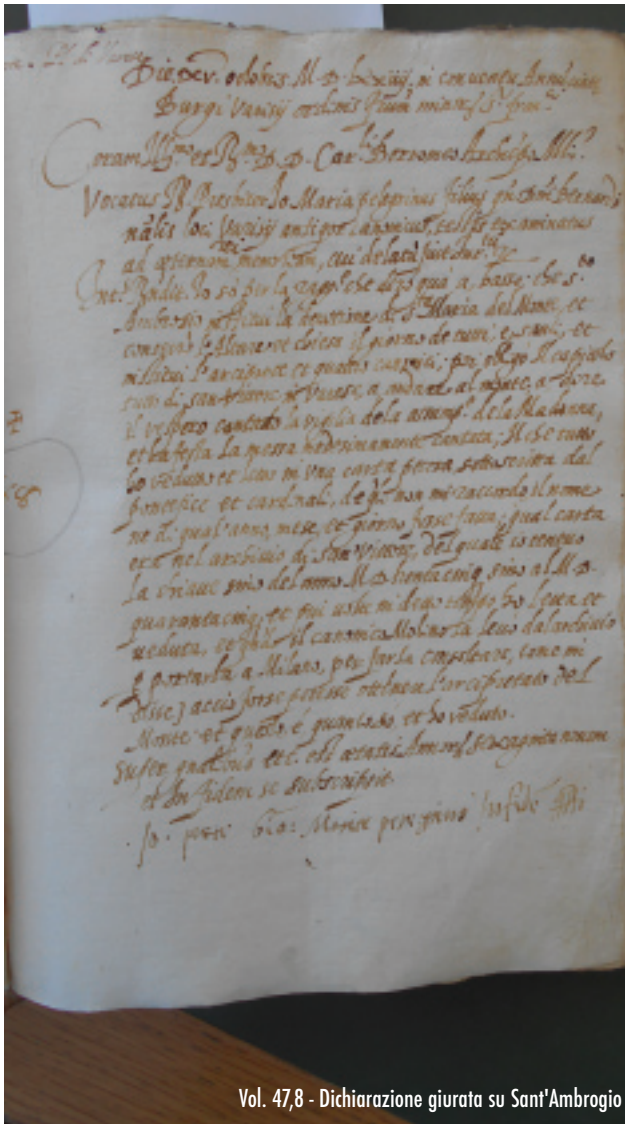 Die xv. octobris M D lxxiiij, in conventu Annuciate
Burgi Varisij ordinis frum minorum S. franci
Coram Ill.mo et R.mo D. D. Car.li Borromeo Archiepo Mli.
Vocatus R. Presbiter Jo Maria pelegrinus filius qu. Dni Bernardi
loci Varisij antiquior canonicus, testis examinatus
ad eternam rei memoriam, cui delatu fuit
Int. Rndit. Io so per la che dirò quà a basso, che s.to
Ambrosio instituì la devotione di S.ta Maria del Monte, et
consegrò l'Altare et chiesa il giorno de tutti e santi, et
instituì l'arciprete et quattro canonici; poi obligò il capitolo
tutto di san Vittore in Varese, a andare al monte, a dire
il vespero cantato la vigilia de la de la Madonna,
et la festa la messa medesimamente cantata; Il che tutto
ho veduto et letto in una carta pecora sottoscritta dal
pontefice et cardinali, de qli non mi raccordo il nome
ne di qual'anno, mese, et giorno fosse fatta; qual carta
era nel archivio di san Victore, del quale io tenevo
la chiave sino del anno M D trentacinq, sino al M D
quarantacinq, et piu volte in detto tempo ho letta et
veduta, et il canonico Molina la levò dal archivio
e portarla a Milano, per farla consultare, come mi
disse, acciò forse potesse ottenere l'arcipretato del
Monte et questo è quanto so, et ho veduto.
Super etc. est aetatis Annorum sexaginta novem
et in fidem se subscripsit.
Jo. prete Gio: Maria peregrino
Vol. 47,8 - Dichiarazione giurata su Sant'Ambrogio